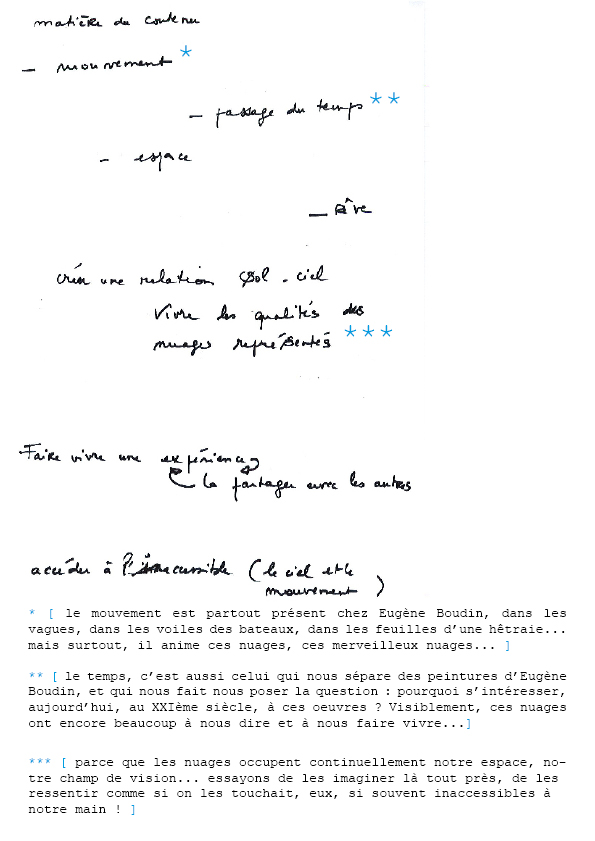 matière du contenu
- mouvement *
- passage du temps **
- espace
- rêve
créer une relation sol - ciel
vivre les qualités des
nuages représentés ***
Faire vivre une expérience
la partager avec les autres
accéder à l'inaccessible (le ciel et le
mouvement)
* [ le mouvement est partout présent chez Eugène Boudin, dans les
vagues, dans les voiles des bateaux, dans les feuilles d'une hêtraie...
mais surtout, il anime ces nuages, ces merveilleux nuages... ]
** [ le temps, c'est aussi celui qui nous sépare des peintures d'Eugène
Boudin, et qui nous fait nous poser la question : pourquoi s'intéresser,
aujourd'hui, au XXIème siècle, à ces oeuvres ? Visiblement, ces nuages
ont encore beaucoup à nous dire et à nous faire vivre...]
*** [ parce que les nuages occupent continuellement notre espace, no-
tre champ de vision... essayons de les imaginer là tout près, de les
ressentir comme si on les touchait, eux, si souvent inaccessibles à
notre main ! ]